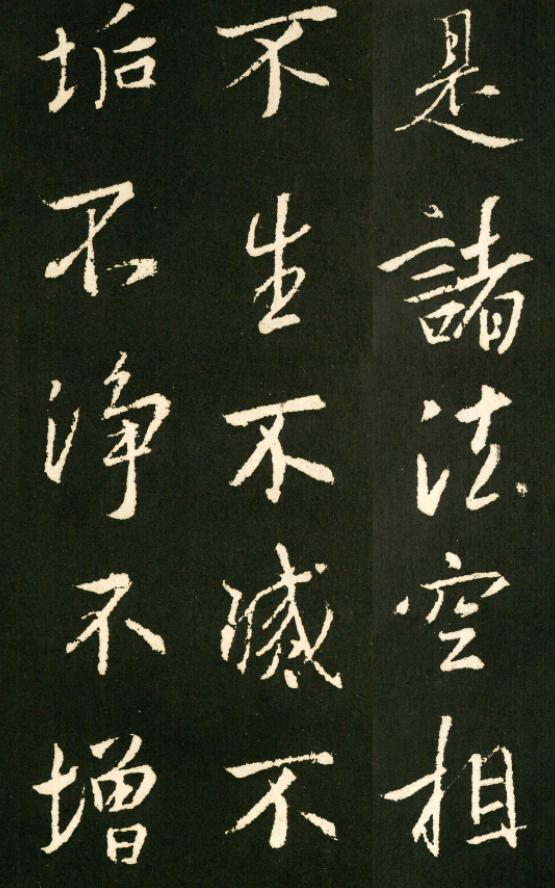 是諸法空相
不生不滅不
垢不淨不增